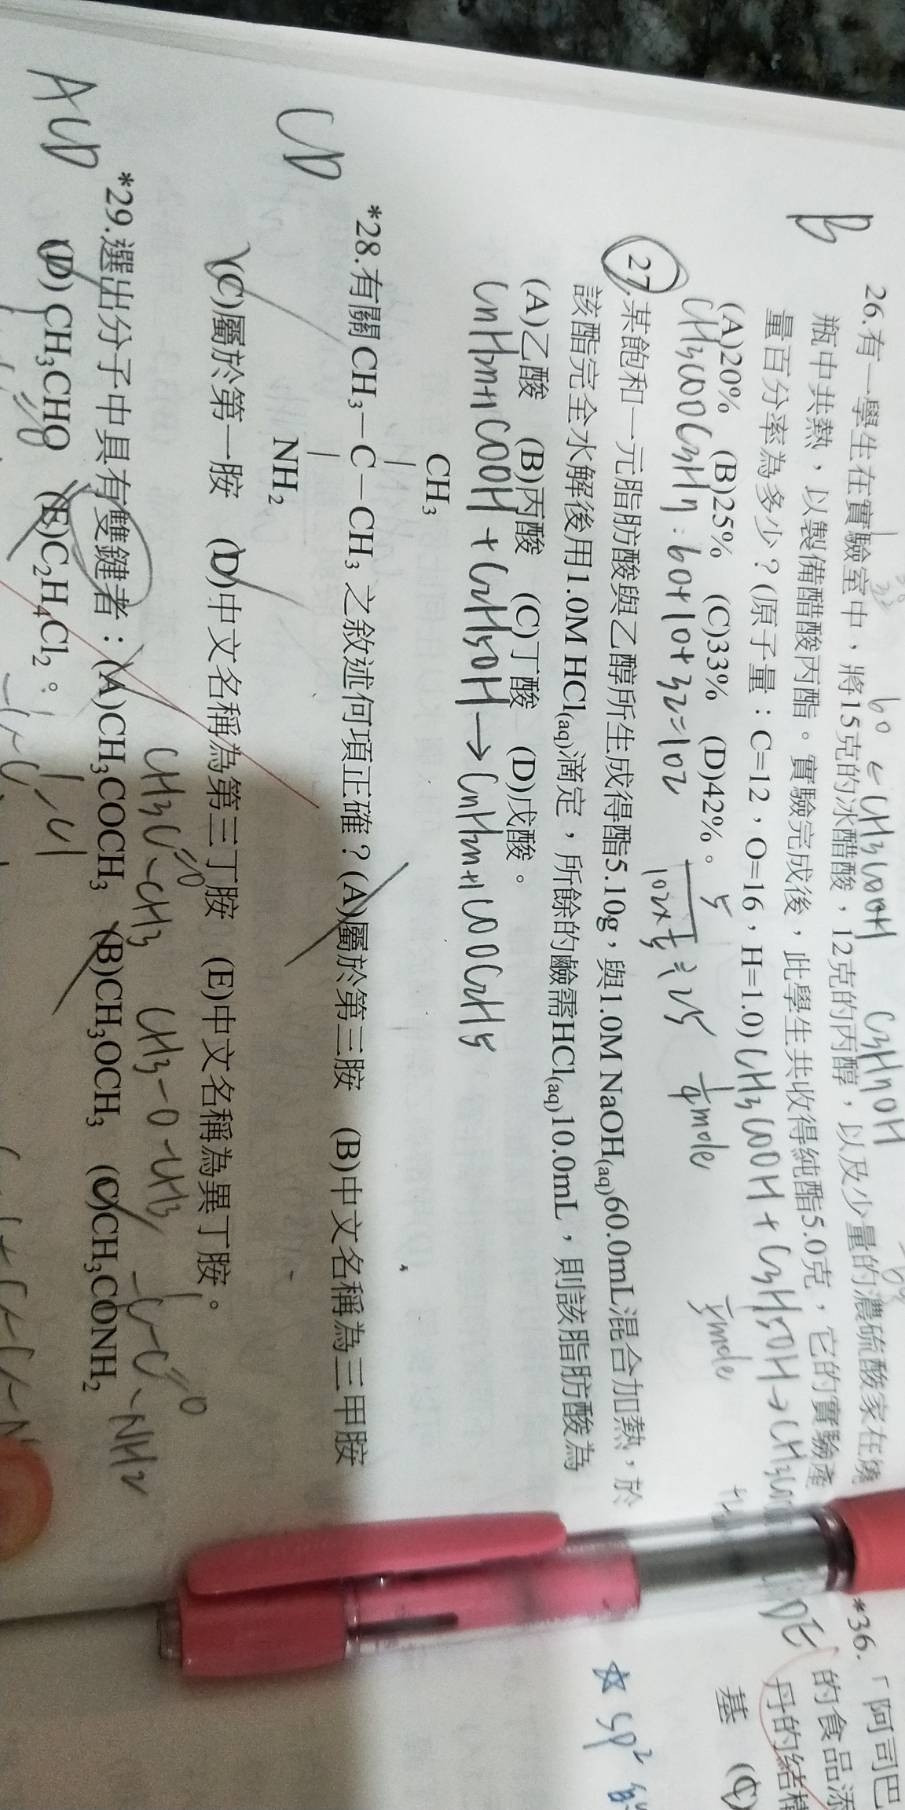 B
26.有一學生在實驗室中,將15克的冰醋酸,12克的丙醇,以及少量的濃硫酸家在燒
瓶中共熱,以製備醋酸丙酯。實驗完成後,此學生共收得純酯5.0克,它的實驗產
量百分率為多少?(原子量:C=12,O=16,H=1.0)
(A)20% (B)25% (C)33% (D)42%。
60 ← CH3COOH
C3H7OH
CH3COOH + C3H7OH →
CH3COOC3H7 : 60+10+32=102
1/4 mole
1/5 mole
5/(102×1/5) ≒ 25
27.某飽和一元脂肪酸與乙醇所生成得酯5.10g,與1.0M NaOH(aq)60.0mL混合加熱,於
該酯完全水解後用1.0M HCl(aq)滴定,所餘的鹼需HCl(aq)10.0mL,則該脂肪酸為
(A)乙酸 (B)丙酸 (C)丁酸 (D)戊酸。
CnH2n+1COOH + C2H5OH → CnH2n+1COOC2H5
CD
CH3
*28.有關CH3-C-CH3 之敘述何項正確?(A)屬於第三胺 (B)中文名稱為三甲胺
NH2
(C)屬於第一胺 (D)中文名稱為第三丁胺 (E)中文名稱為異丁胺。
CH3C=O-CH3
CH3-O-CH3
-C-C=O-NH2
ACD
*29.選出分子中具有雙鍵者:(A)CH3COCH3 (B)CH3OCH3 (C)CH3CONH2
(D)CH3CHO (E)C2H4Cl2。
*36.「阿司巴
的食品添
丹的結構
基 (C)
DE
☆ sp²